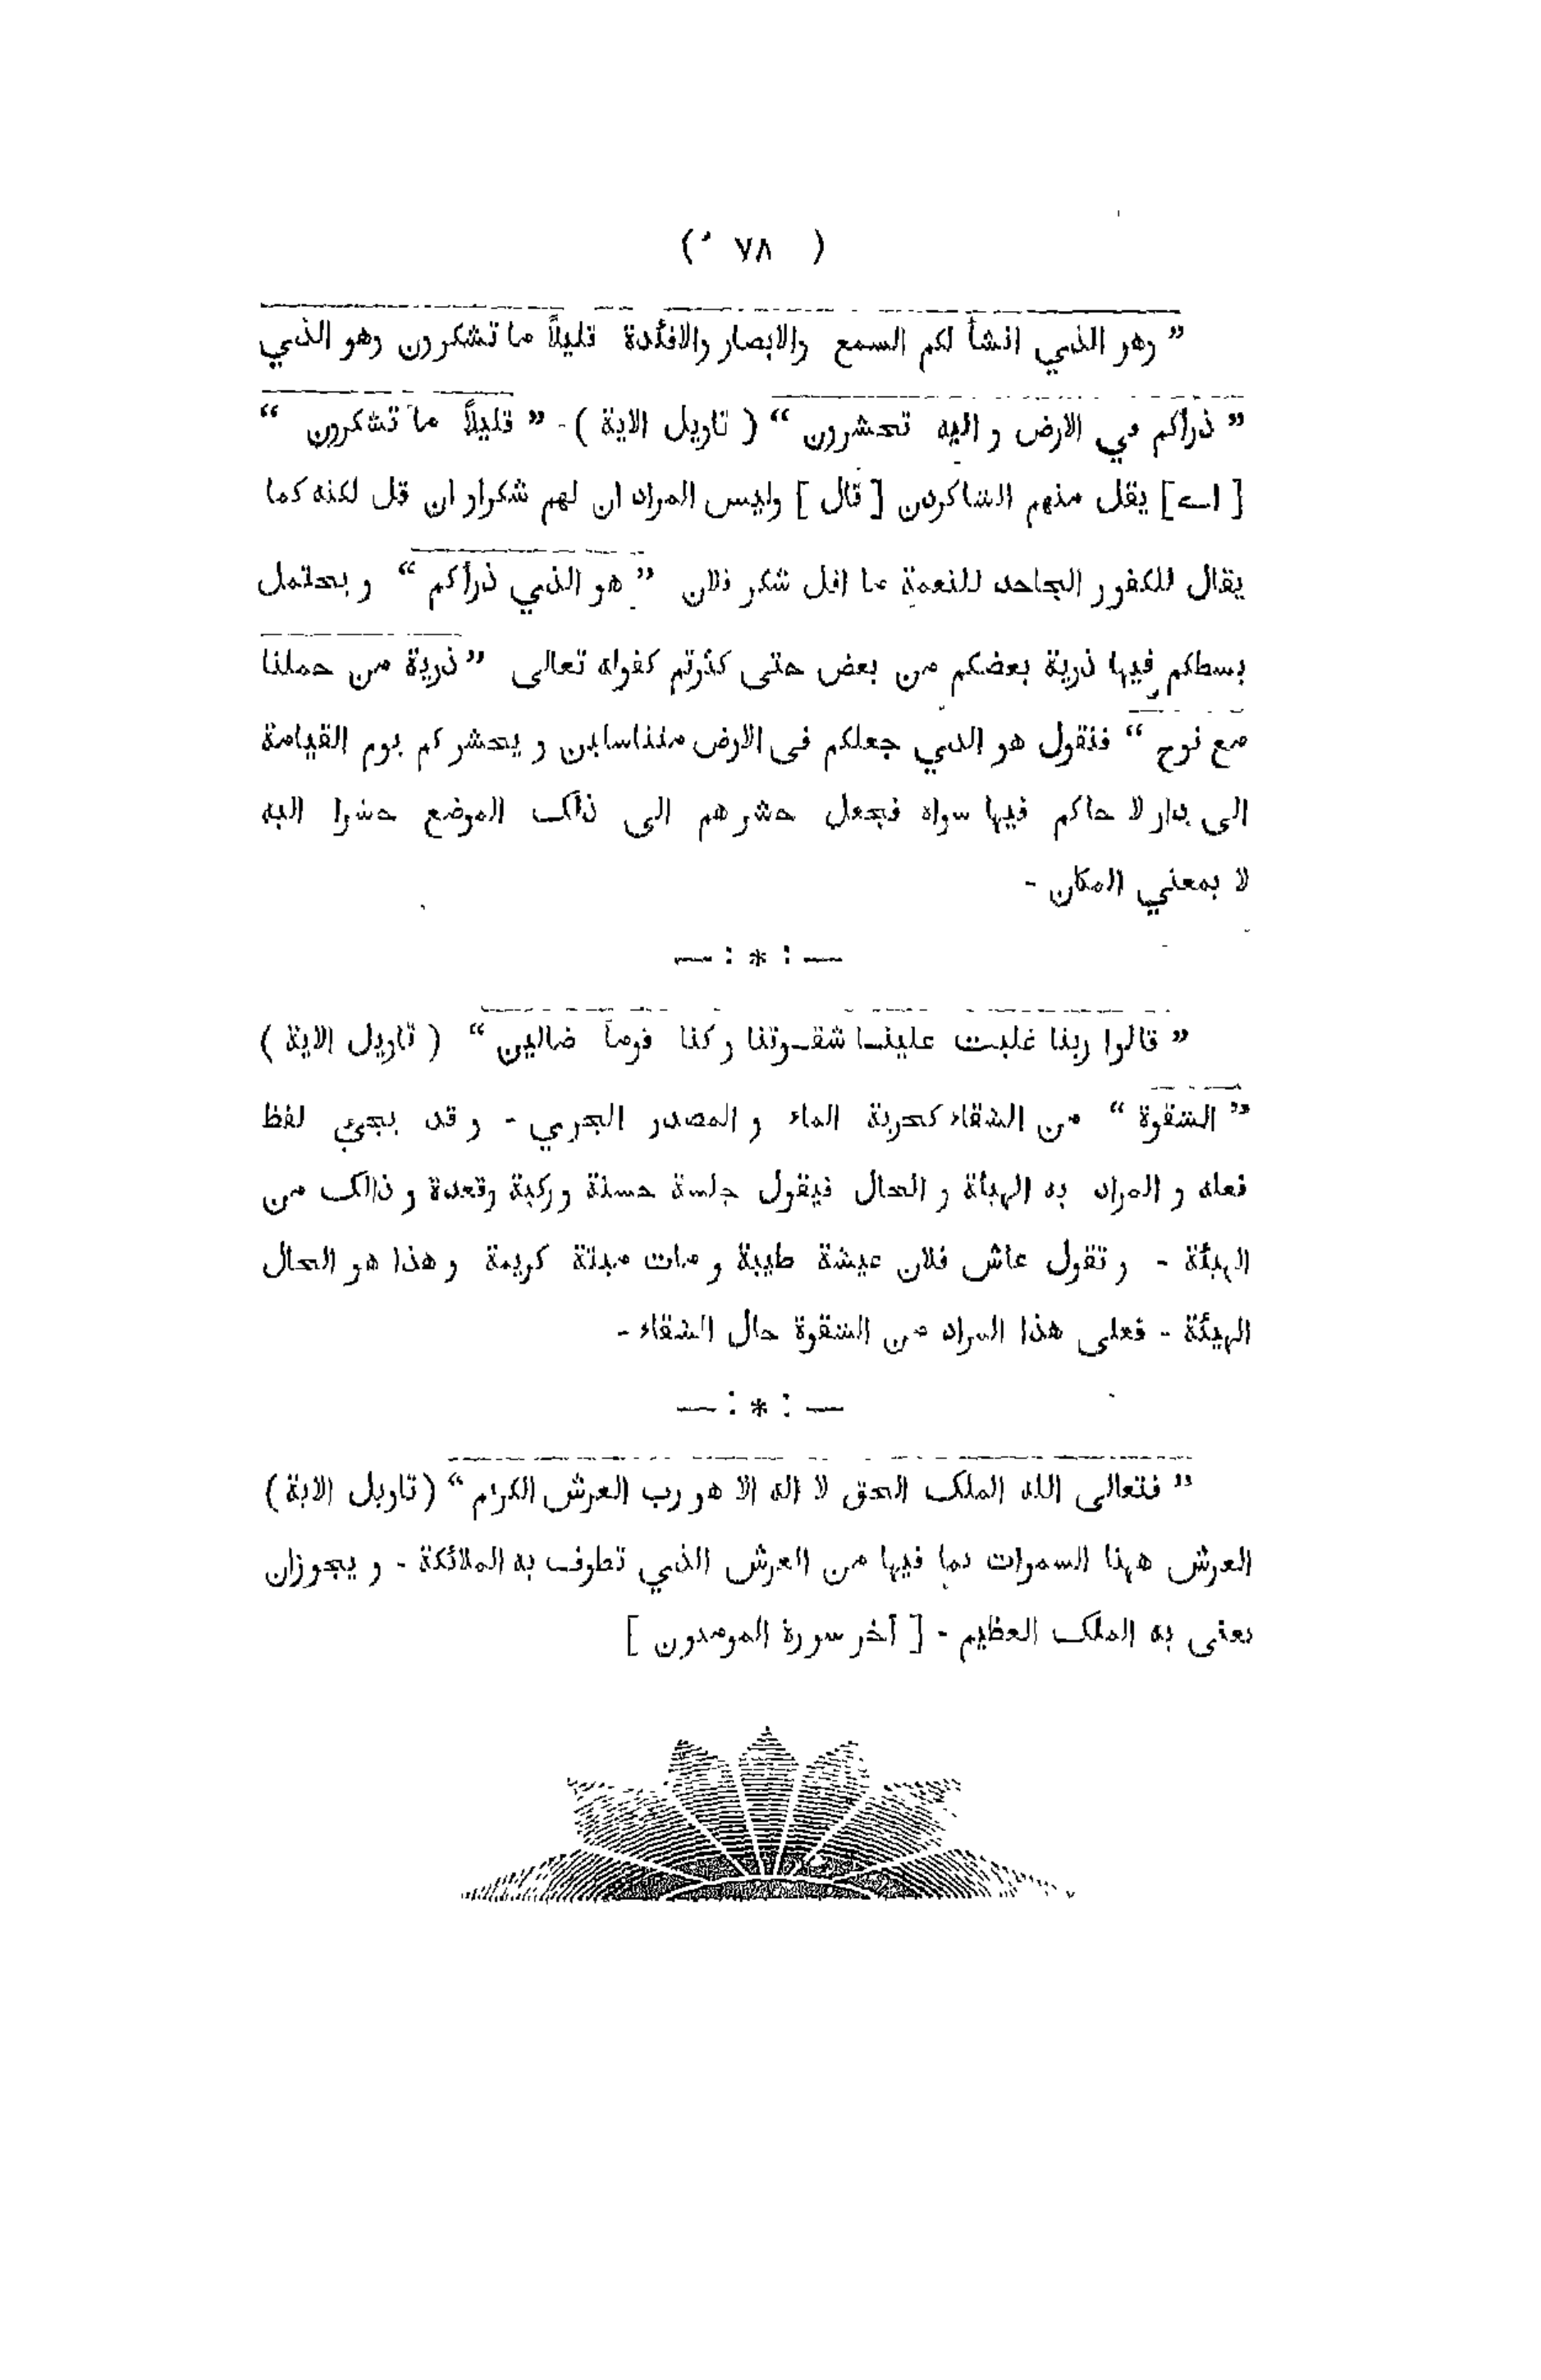 ( ٧٨ )
” وهو الذي انشأ لكم السمع والابصار والافئدة قليلاً ما تشكرون وهو الذي
” ذرأكم في الارض و اليه تحشرون “ ( تاويل الاية ) - ” قليلاً ما تشكرون “
[ اے ] يقل منهم الشاكرون [ قال ] وليس المراد ان لهم شكرا و ان قل لكنه كما
يقال للكفور الجاحد للنعمة ما اقل شكر فلان ” هو الذي ذرأكم “ و يحتمل
بسطكم فيها ذرية بعضكم من بعض حتى كثرتم كقوله تعالى ” ذرية من حملنا
مع نوح “ فنقول هو الذي جعلكم فى الارض متناسلين و يحشركم يوم القيامة
الى دار لا حاكم فيها سواه فجعل حشرهم الى ذلك الموضع حشرا اليه
لا بمعني المكان -
— : * : —
” قالوا ربنا غلبت علينا شقوتنا وكنا قوماً ضالين “ ( تاويل الاية )
” الشقوة “ من الشقاء كجرية الماء و المصدر الجري - و قد يجئ لفظ
فعله و المراد به الهيأة و الحال فيقول جلسة حسنة و ركبة وقعدة و ذالك من
الهيئة - و تقول عاش فلان عيشة طيبة و مات ميتة كريمة و هذا هو الحال
الهيئة - فعلى هذا المراد من الشقوة حال الشقاء -
— : * : —
” فتعالى الله الملك الحق لا اله الا هو رب العرش الكريم “ ( تاويل الاية )
العرش ههنا السموات بما فيها من العرش الذي تطوف به الملائكة - و يجوز ان
يعنى به الملك العظيم - [ آخر سورة المومنون ]